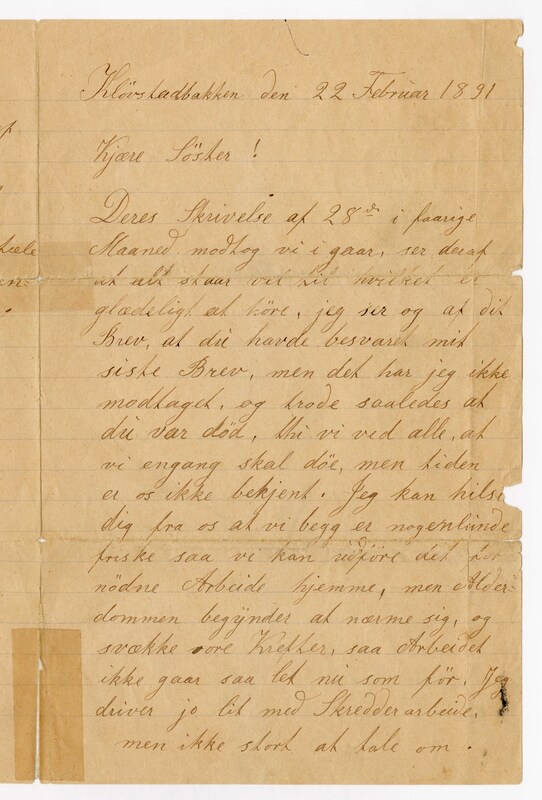 Klövstadbakken den 22 Februar 1891
Kjære Söster!
Deres Skrivelse af 28de i faarige
Maaned modtog vi i gaar, ser deraf
at alt staar vel til hvilket er
glædeligt at höre, jeg ser og af dit
Brev, at du havde besvaret mit
siste Brev, men det har jeg ikke
modtaget, og trode saaledes at
du var död, thi vi ved alle, at
vi engang skal döe, men tiden
er os ikke bekjent. Jeg kan hilse
dig fra os at vi begg er nogenlunde
friske saa vi kan udföre det for
nödne Arbeide hjemme, men Alder-
dommen begynder at nærme sig, og
svække vore Krefter, saa Arbeidet
ikke gaar saa let nu som för. Jeg
driver jo lit med Skredderarbeide,
men ikke stort at tale om.
tæle
en-